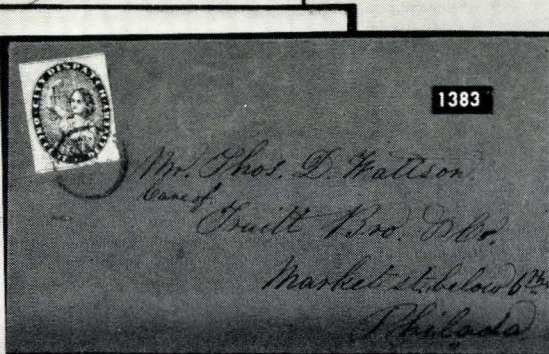 CITY DISPATCH
1383
Mr. Thos. D. Wattson
Care of
Truitt Bro. & Co.
Market st. below 6th
Philada